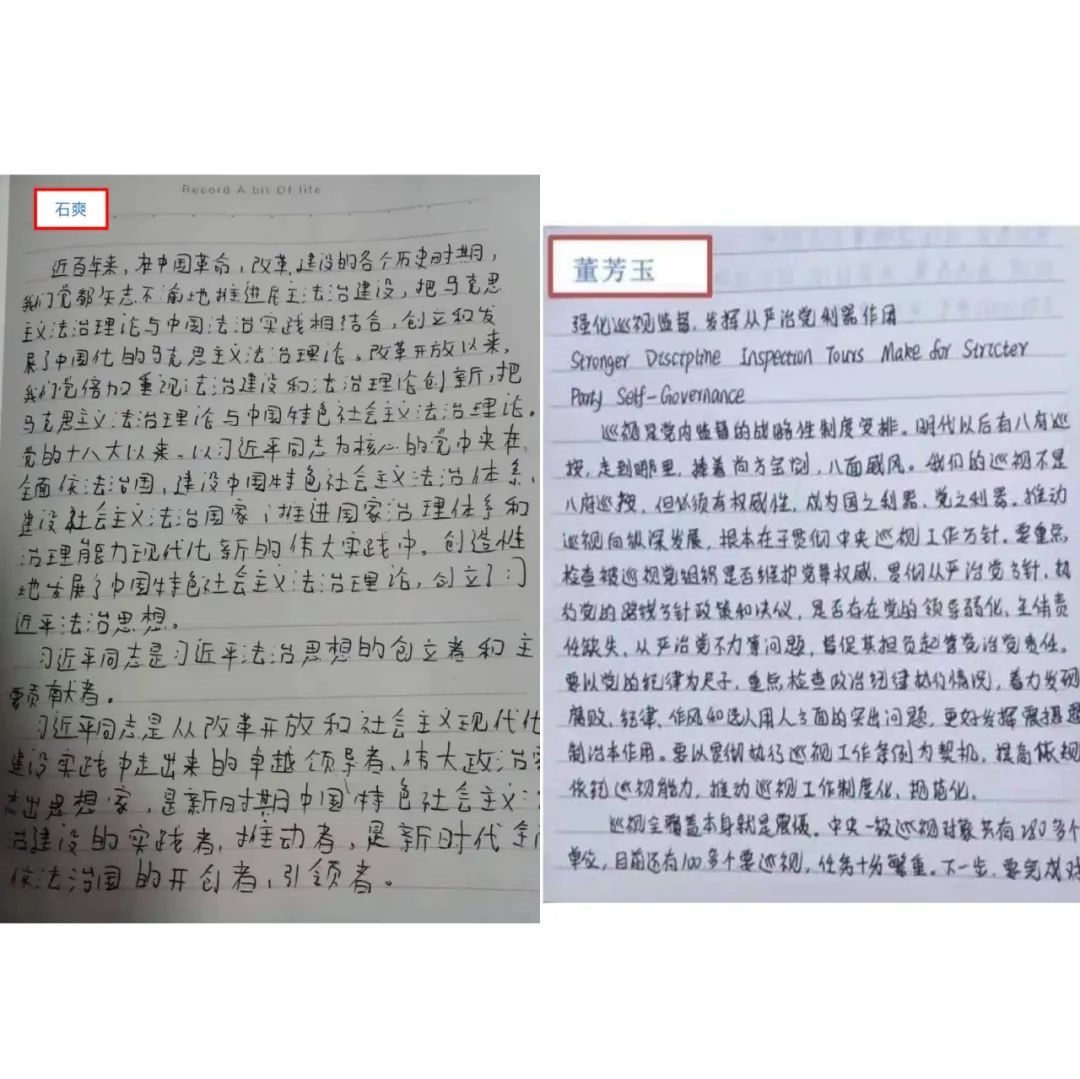 石爽
Record A bit Of life
近百年来，在中国革命，改革，建设的各个历史时期，
我们党都矢志不渝地推进民主法治建设，把马克思
主义法治理论与中国法治实践相结合，创立和发
展了中国化的马克思主义法治理论。改革开放以来，
我们党倍加重视法治建设和法治理论创新，把
马克思主义法治理论与中国特色社会主义法治理论。
党的十八大以来，以习近平同志为核心的党中央在
全面依法治国，建设中国特色社会主义法治体系、
建设社会主义法治国家，推进国家治理体系和
治理能力现代化新的伟大实践中。创造性
地发展了中国特色社会主义法治理论，创立了习
近平法治思想。
习近平同志是习近平法治思想的创立者和主
要贡献者。
习近平同志是从改革开放和社会主义现代化
建设实践中走出来的卓越领导者、伟大政治家
杰出思想家，是新时期中国特色社会主义法
治建设的实践者，推动者，是新时代全面
依法治国的开创者，引领者。
董芳玉
强化巡视监督，发挥从严治党利器作用
Stronger Discipline Inspection Tours Make for Stricter
Party Self-Governance
巡视是党内监督的战略性制度安排。明代以后有八府巡
按，走到哪里，捧着尚方宝剑，八面威风。我们的巡视不是
八府巡按，但必须有权威性，成为国之利器、党之利器。推动
巡视向纵深发展，根本在于贯彻中央巡视工作方针。要重点
检查被巡视党组织是否维护党章权威、贯彻从严治党方针，执
行党的路线方针政策和决议，是否存在党的领导弱化、主体责
任缺失、从严治党不力等问题，督促其担负起管党治党责任。
要以党的纪律为尺子，重点检查政治纪律执行情况，着力发现
腐败、纪律、作风和选人用人方面的突出问题，更好发挥震慑遏
制治本作用。要以贯彻执行巡视工作条例为契机，提高依规
依纪巡视能力，推动巡视工作制度化、规范化。
巡视全覆盖本身就是震慑。中央一级巡视对象共有280多个
单位，目前还有100多个要巡视，任务十分繁重。下一步，要完成对